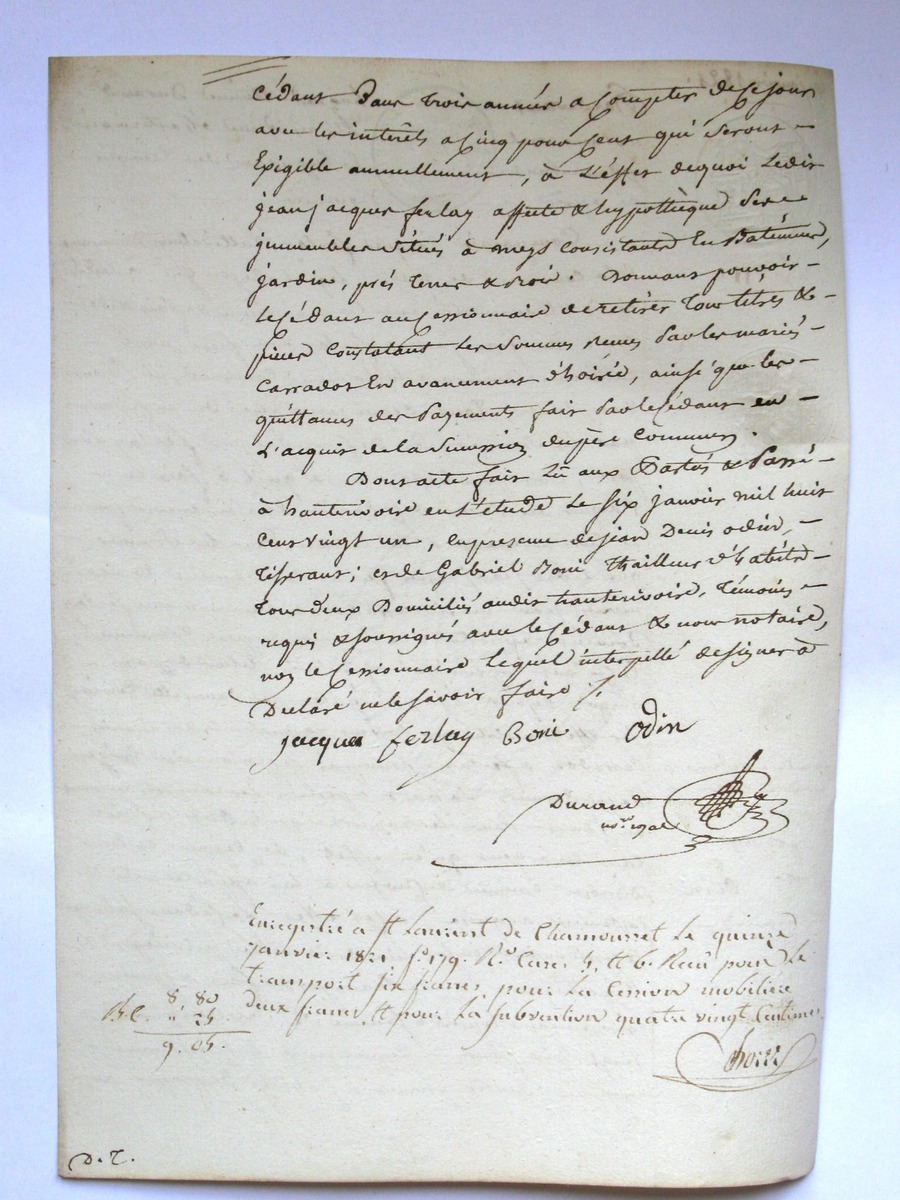 Cédant Dans trois années a Compter de ce jour
avec les intérêts a Cinq pour Cent qui Seront
Exigible annuellement, à L'effet dequoi Ledit
jean jacques ferlay affecte & hypothèque Ses
immeubles Situés à meys Consistants En Batiments,
jardin, prés terres & Bois. Donnant pouvoir
le Cédant au Cessionnaire de retirer Tous titres &
pieces Constatant Les Sommes reçues Par les mariés
Carradot En avancement d'hoirie, ainsi que les
quittances des Payements fait Par le Cédant en
L'acquit de la Succession du père Commun.
Dont acte fait Lû aux Parties & Passé
à hauterivoire en L'etude Le Six janvier mil huit
Cent vingt un, en presence de jean Denis odin,
Tisserant; et de Gabriel Boni Thailleur d'habits
tous deux Domiciliés audit hauterivoire, témoins
requis & Soussignés avec le Cédant & nous notaire,
non le Cessionnaire lequel interpellé de Signer a
Declaré ne le Savoir faire ./.
jacques ferlay Boni Odin
Durand
nore. royal
Enregistré a St Laurent de Chamousset Le quinze
janvier 1821 fo. 179. Ro. Case. 5. et 6. Reçû pour Le
transport six francs pour La Cession mobilière
deux francs, et pour La subvention quatre vingt Centimes.
8. 80
" 25
9. 05.
D. T.